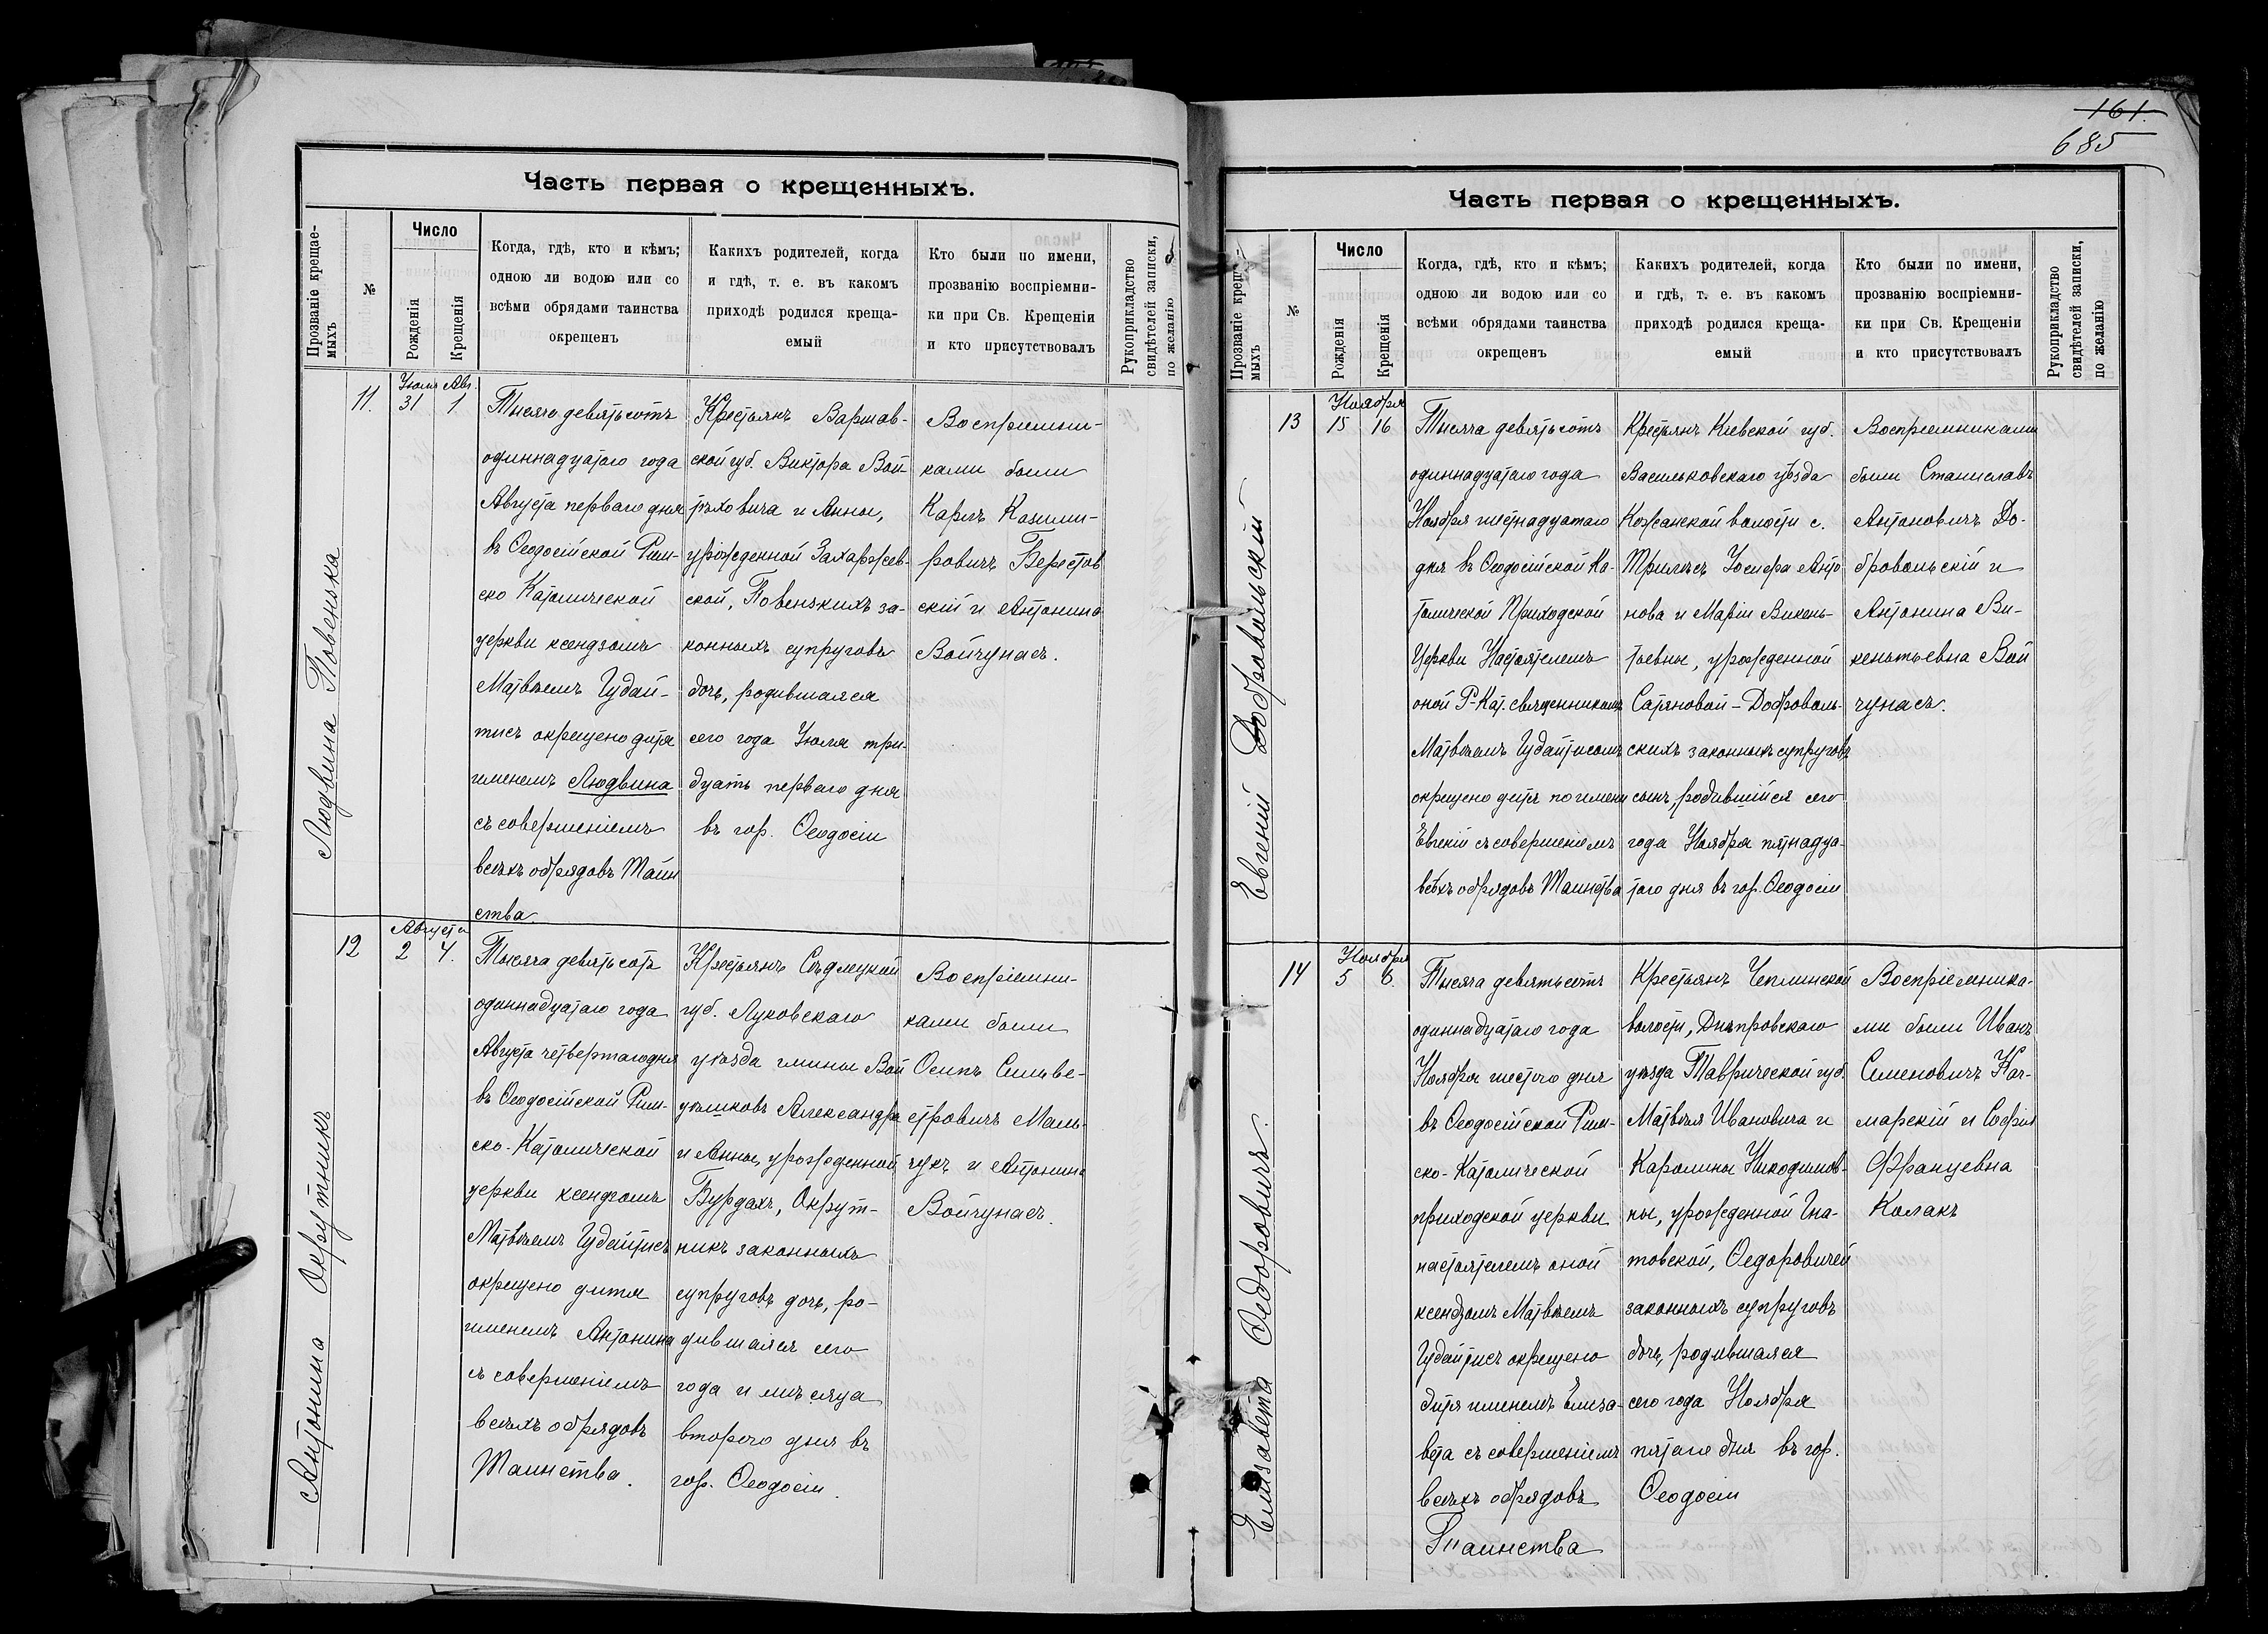 Часть первая о крещенныхъ.
Прозваніе крещае-
мыхъ
№
Число
Рожденія
Крещенія
Когда, гдѣ, кто и кѣмъ;
одною ли водою или со
всѣми обрядами таинства
окрещенъ
Какихъ родителей, когда
и гдѣ, т. е. въ какомъ
приходѣ родился креща-
емый
Кто были по имени,
прозванію воспріемни-
ки при Св. Крещеніи
и кто присутствовалъ
Рукоприкладство
свидѣтелей записки,
по желанію
Людвина Повензка
11.
Іюля Авг.
31 1
Тысяча девятьсотъ
одиннадцатаго года
Августа перваго дня
въ Ѳеодосійской Рим-
ско Католической
церкви ксендзомъ
Матвѣемъ Гудай-
тисъ окрещено дитя
именемъ Людвина
съ совершеніемъ
всѣхъ обрядовъ Таин
ства.
Крестьянъ Варшав-
ской губ. Виктора Вой
тѣховича и Анны,
урожденной Захаржев-
ской, Повензкихъ за-
конныхъ супруговъ
дочь, родившаяся
сего года Іюля три-
дцать перваго дня
въ гор. Ѳеодосіи
Воспріемни-
ками были
Карлъ Казими-
ровичъ Берестов
скій и Антонина
Войчунасъ.
Антонина Окрутникъ
12
Августа
2 4.
Тысяча девятьсотъ
одиннадцатаго года
Августа четвертаго дня
въ Ѳеодосійской Рим-
ско-Католической
церкви ксендзомъ
Матвѣемъ Гудайтисъ
окрещено дитя
именемъ Антонина
съ совершеніемъ
всѣхъ обрядовъ
Таинства.
Крестьянъ Сѣдлецкой
губ. Луковскаго
уѣзда гмины Вой
цѣшковъ Александра
и Анны, урожденной
Бурдахъ, Окрут-
никъ законныхъ
супруговъ дочь, ро-
дившаяся сего
года и мѣсяца
второго дня въ
гор. Ѳеодосіи.
Воспріемни-
ками были
Осипъ Сильве-
стровичъ Маль-
чукъ и Антонина
Войчунасъ.
161.
685
Часть первая о крещенныхъ.
Прозваніе крещ
мыхъ
№
Число
Рожденія
Крещенія
Когда, гдѣ, кто и кѣмъ;
одною ли водою или со
всѣми обрядами таинства
окрещенъ
Какихъ родителей, когда
и гдѣ, т. е. въ какомъ
приходѣ родился креща-
емый
Кто были по имени,
прозванію воспріемни-
ки при Св. Крещеніи
и кто присутствовалъ
Рукоприкладство
свидѣтелей записки,
по желанію
Евгеній Добровольскій
13
Ноября
15 16
Тысяча девятьсотъ
одиннадцатаго года
Ноября шестнадцатаго
дня въ Ѳеодосійской Ка-
толической Приходской
Церкви Настоятелемъ
оной Р-Кат. священникомъ
Матвѣемъ Гудайтисомъ
окрещено дитя по имени
Евгеній съ совершеніемъ
всѣхъ обрядовъ Таинства
Крестьянъ Кіевской губ.
Васильковскаго уѣзда
Кожанской волости с.
Трилѣсъ Іосифа Анто
нова и Маріи Викень-
тьевны, урожденной
Сатановой-Доброволь-
скихъ законныхъ супруговъ
сынъ, родившійся сего
года Ноября пятнадца-
таго дня въ гор. Ѳеодосіи
Воспріемниками
были Станиславъ
Антоновичъ До-
бровольскій и
Антонина Ви-
кентьевна Вой
чунасъ.
Елизавета Ѳедоровичъ.
14
Ноября
5 6.
Тысяча девятьсотъ
одиннадцатаго года
Ноября шестого дня
въ Ѳеодосійской Рим-
ско-Католической
приходской церкви
настоятелемъ оной
ксендзомъ Матвѣемъ
Гудайтисъ окрещено
дитя именемъ Елиза-
вета съ совершеніемъ
всѣхъ обрядовъ
Таинства
Крестьянъ Чеплинской
волости, Днѣпровскаго
уѣзда Таврической губ.
Матвѣя Ивановича и
Каролины Никодимов-
ны, урожденной Гна-
товской, Ѳедоровичей
законныхъ супруговъ
дочь, родившаяся
сего года Ноября
пятаго дня въ гор.
Ѳеодосіи
Воспріемника-
ми были Иванъ
Семеновичъ Кач-
марскій и Софія
Францевна
Колакъ